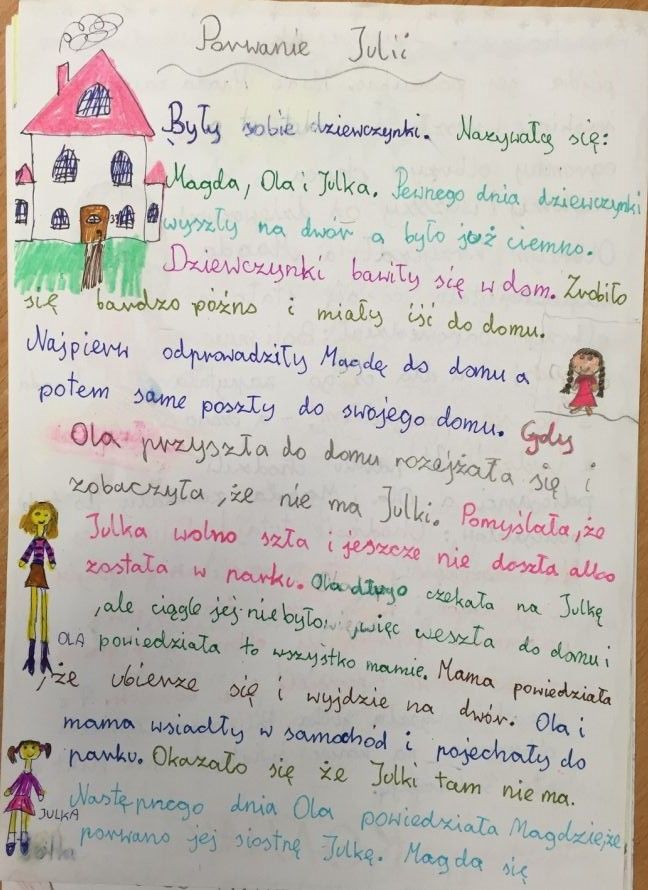 Porwanie Julii
Były sobie dziewczynki. Nazywałą się:
Magda, Ola i Julka. Pewnego dnia dziewczynki
wyszły na dwór a było już ciemno.
Dziewczynki bawiły się w dom. Zrobiło
się bardzo późno i miały iść do domu.
Najpierw odprowadziły Magdę do domu a
potem same poszły do swojego domu. Gdy
Ola przyszła do domu rozejżała się i
zobaczyła, że nie ma Julki. Pomyślała, że
Julka wolno szła i jeszcze nie doszła albo
została w parku. Ola długo czekała na Julkę
, ale ciągle jej niebyło, więc weszła do domu i
OLA powiedziała to wszystko mamie. Mama powiedziała
, że ubierze się i wyjdzie na dwór. Ola i
mama wsiadły w samochód i pojechały do
parku. Okazało się że Julki tam nie ma.
Następnego dnia Ola powiedziała Magdzie, że
JULKA
porwano jej siostrę Julkę. Magda się